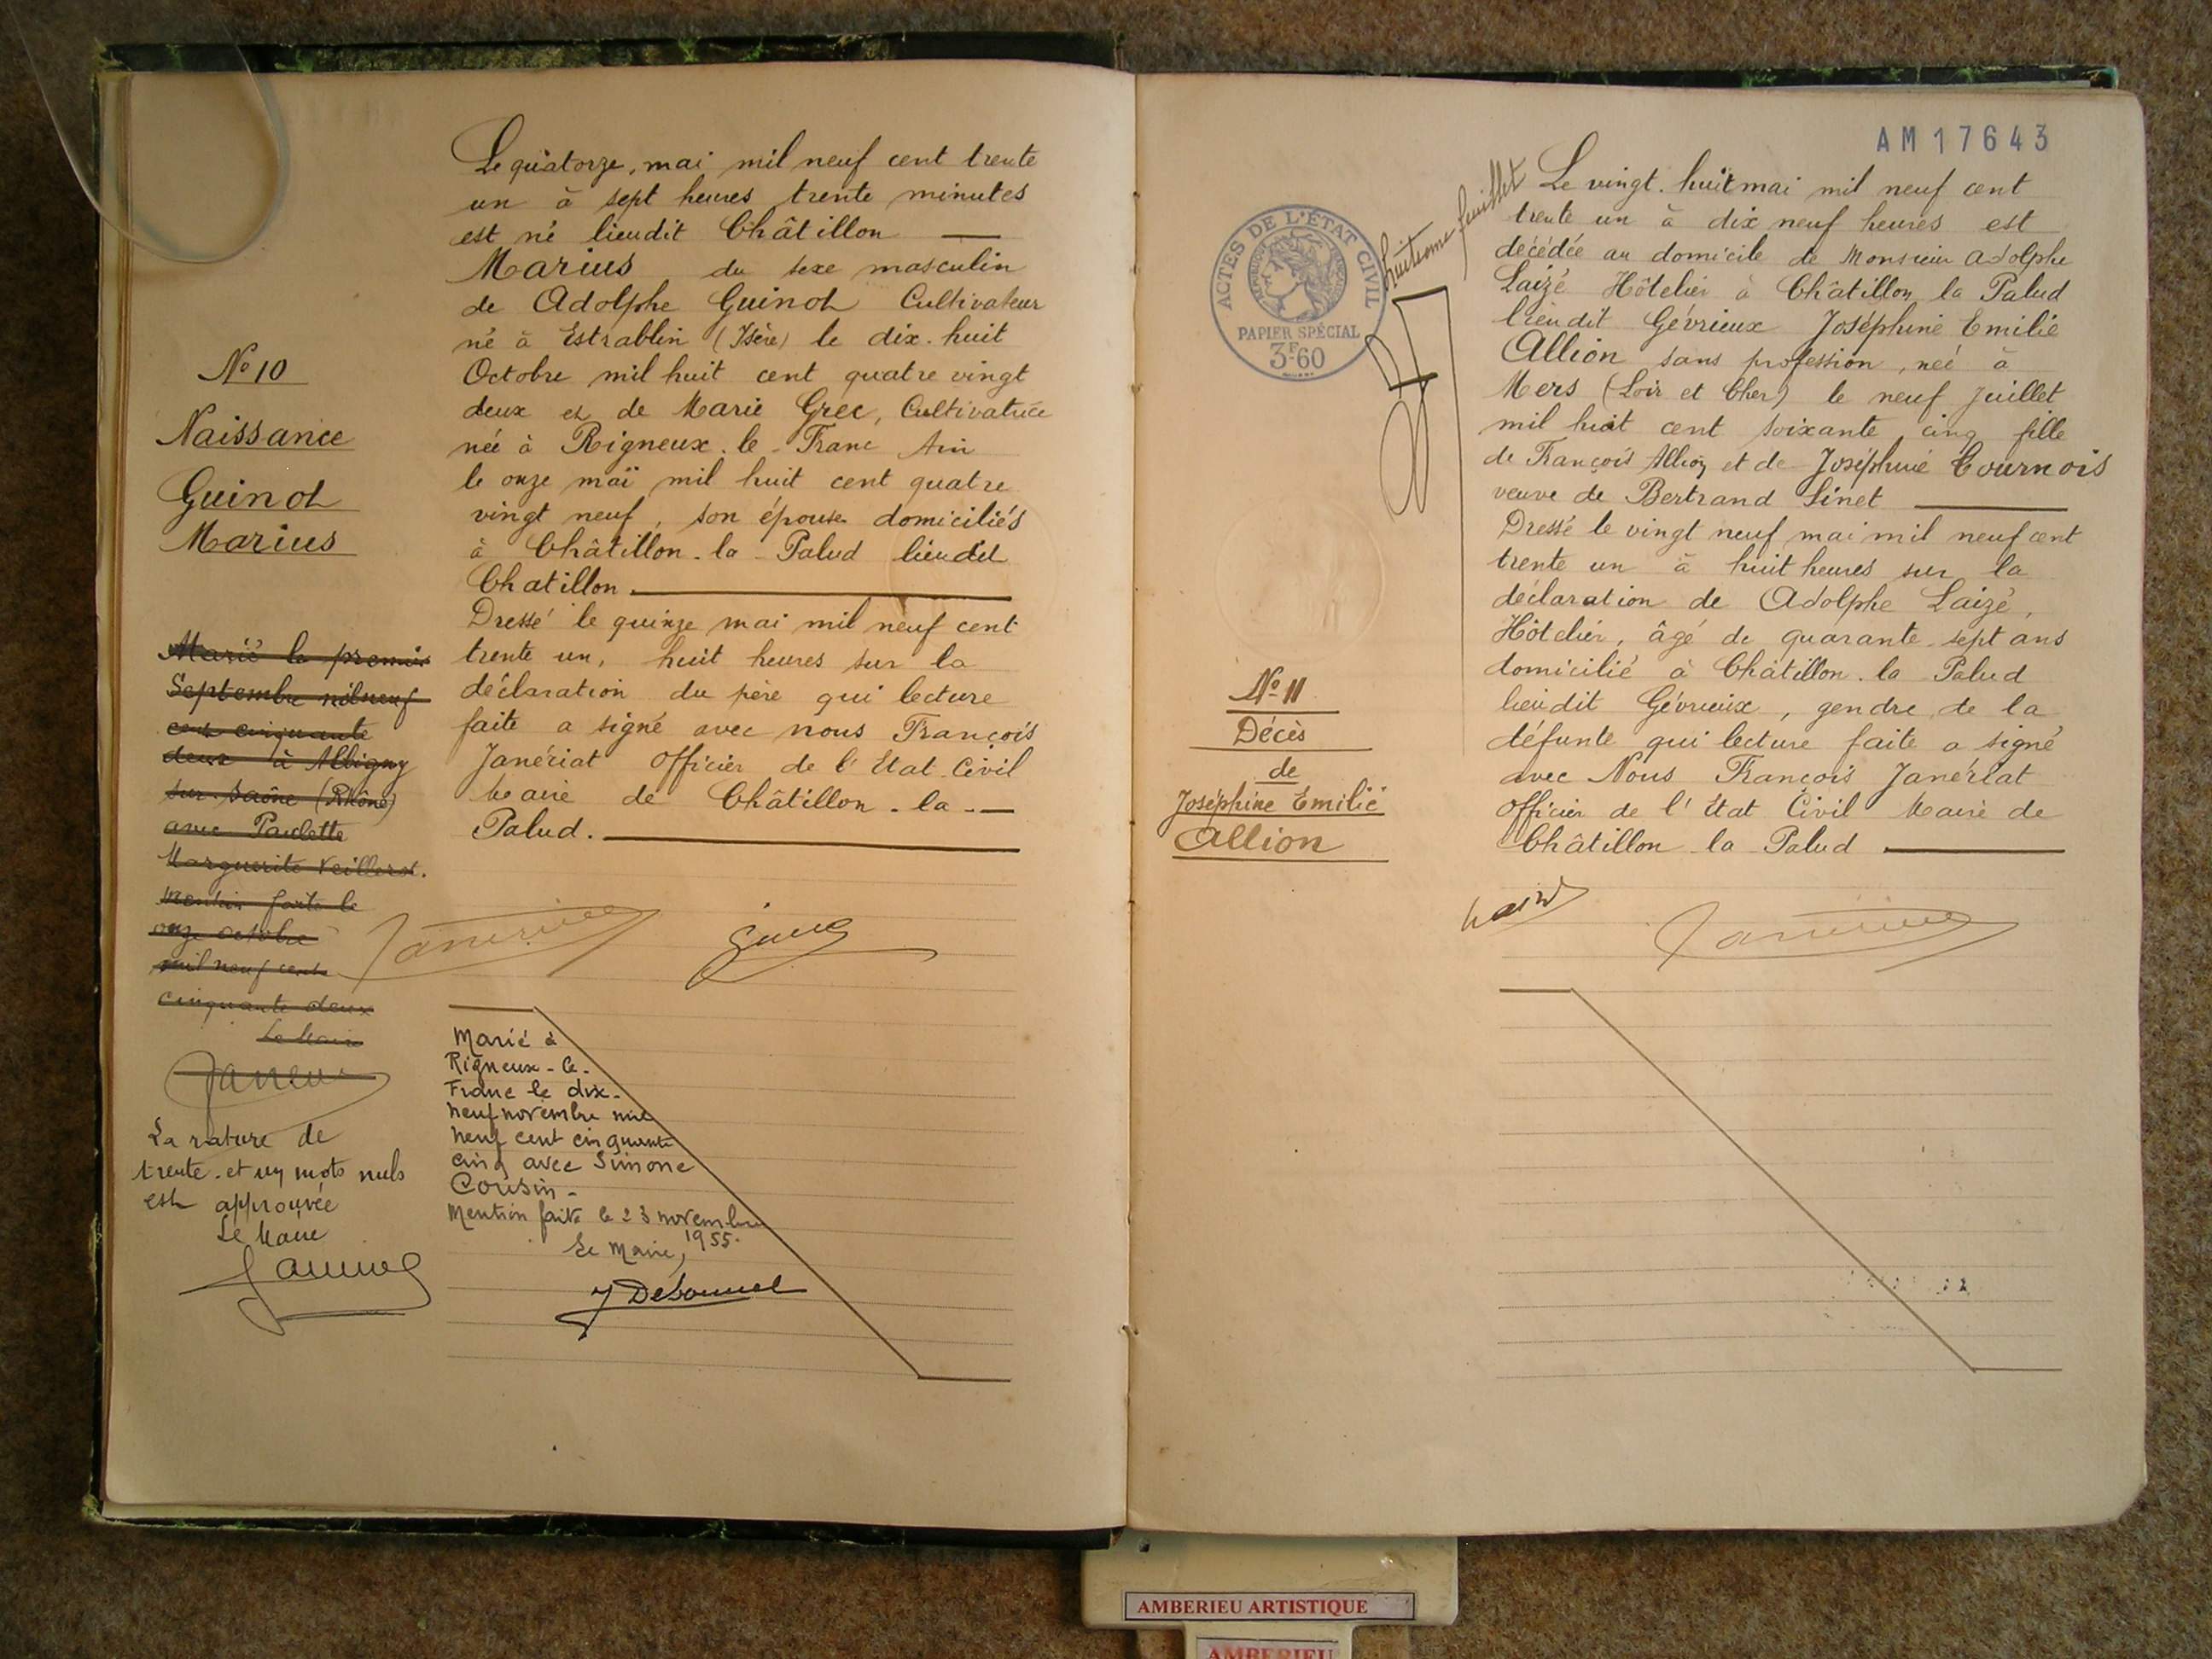 Le quatorze, mai mil neuf cent trente
un à sept heures trente minutes
est né lieudit Châtillon
Marius du sexe masculin
de Adolphe Guinot Cultivateur
né à Estrablin (Isère) le dix-huit
Octobre mil huit cent quatre vingt
deux et de Marie Grec, Cultivatrice
née à Rigneux-le-Franc Ain
le onze mai mil huit cent quatre
vingt neuf, son épouse domiciliés
à Châtillon-la-Palud lieudit
Chatillon
Dressé le quinze mai mil neuf cent
trente un, huit heures sur la
déclaration du père qui lecture
faite a signé avec nous François
Janériat Officier de l'Etat Civil
Maire de Châtillon-la-
Palud.
N° 10
Naissance
Guinot
Marius
Marié le premier
Septembre mil neuf
cent cinquante
deux à Albigny
sur Saône (Rhône)
avec Paulette
Marguerite
Mention faite le
onze octobre
mil neuf cent
cinquante deux
Le Maire
La rature de
trente-et un mots nuls
est approuvée
Le Maire
Marié à
Rigneux-le-
Franc le dix-
neuf novembre mil
neuf cent cinquante
cinq avec Simone
Cousin-
Mention faite le 23 novembre
1955.
Le Maire,
AM17643
huitième feuillet
ACTES DE L'ÉTAT CIVIL
PAPIER SPÉCIAL
3F.60
Le vingt-huit mai mil neuf cent
trente un à dix neuf heures est
décédée au domicile de Monsieur Adolphe
Laizé Hôtelier à Châtillon la Palud
lieudit Gévrieux Joséphine Emilie
Allion sans profession, née à
Mers (Loir et Cher) le neuf Juillet
mil huit cent soixante cinq fille
de François Allion et de Joséphine Cournois
veuve de Bertrand Linet
Dressé le vingt neuf mai mil neuf cent
trente un à huit heures sur la
déclaration de Adolphe Laizé,
Hôtelier, âgé de quarante-sept ans
domicilié à Châtillon-la Palud
lieudit Gévrieux, gendre de la
défunte qui lecture faite a signé
avec Nous François Janériat
Officier de l'Etat Civil Maire de
Châtillon-la Palud
N° 11
Décès
de
Joséphine Emilie
Allion
AMBERIEU ARTISTIQUE
AMBERIEU